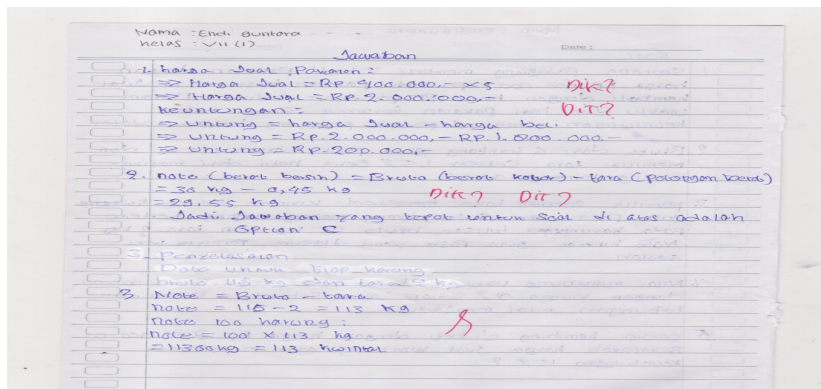 Nama : Endi Guntara
Kelas : VII (1)
Date :
Jawaban
1. harga Jual Pakaian :
=> Harga Jual = RP 400.000,- x 5
Dik?
=> Harga Jual = RP. 2.000.000,-
Dit?
Keuntungan :
=> untung = harga Jual - harga beli
=> untung = RP. 2.000.000,- RP. 1.800.000,-
=> untung = RP. 200.000,-
2. Neto (berat bersih) = Bruto (berat kotor) - tara (potongan berat)
= 30 kg - 0,45 kg
Dik? Dit?
= 29,55 kg
Jadi Jawaban yang tepat untuk Soal di atas adalah
Option C
3. Penyelesaian
Data untuk tiap karung
bruto 115 kg dan tara 2 kg
3. Neto = Bruto - tara
neto = 115 - 2 = 113 kg
Neto 100 karung :
neto = 100 x 113 kg
= 11300 kg = 113 kwintal